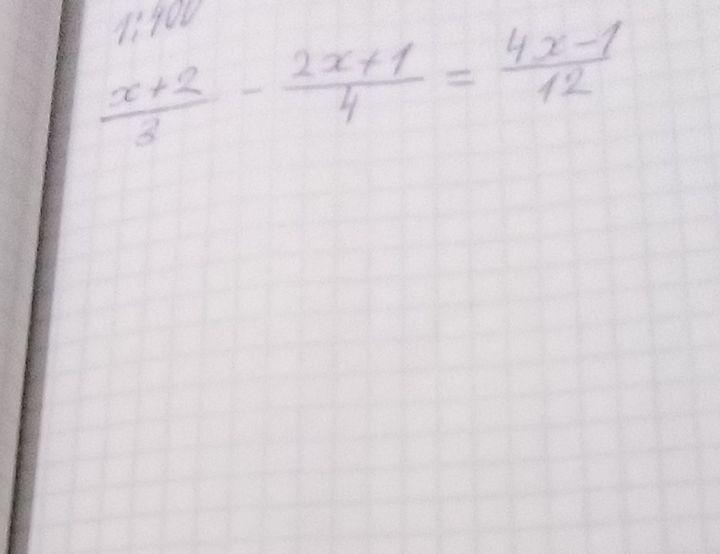 1:400
x+2/3 - 2x+1/4 = 4x-1/12